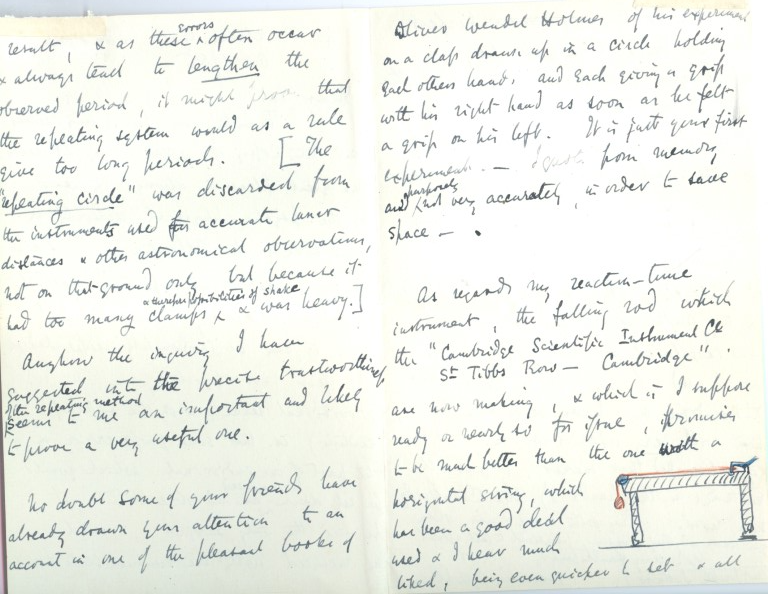 Errors
result, & as these & often occur
& always tend to lengthen the
observed period, it might prove that
the repeating system would as a rule
give too long periods. [The
"repeating circle" was discarded from
the instruments used for accurate lunar
distances & other astronomical observations,
not on that ground only but because it
& therefore possibilities of shake
had too many clamps & was heavy.]
Anyhow the inquiry I have
suggested into the precise trustworthiness
of the repeating method
seems to me an important and likely
to prove a very useful one.
No doubt some of your friends have
already drawn your attention to an
account in one of the pleasant books of
Oliver Wendel Holmes of his experiment
on a class drawn up in a circle holding
each others hands, and each giving a grip
with his right hand as soon as he felt
a grip on his left. It is just your first
experiment. — I quote from memory
purposely
and not very accurately, in order to save
space —
As regards my reaction-time
instrument, the falling rod which
the "Cambridge Scientific Instrument Co
St Tibbs Row — Cambridge".
are now making, & which is I suppose
ready or nearly so for issue, it promises
to be much better than the one with a
horizontal string, which
has been a good deal
used & I hear much
liked, being even quicker to set & all